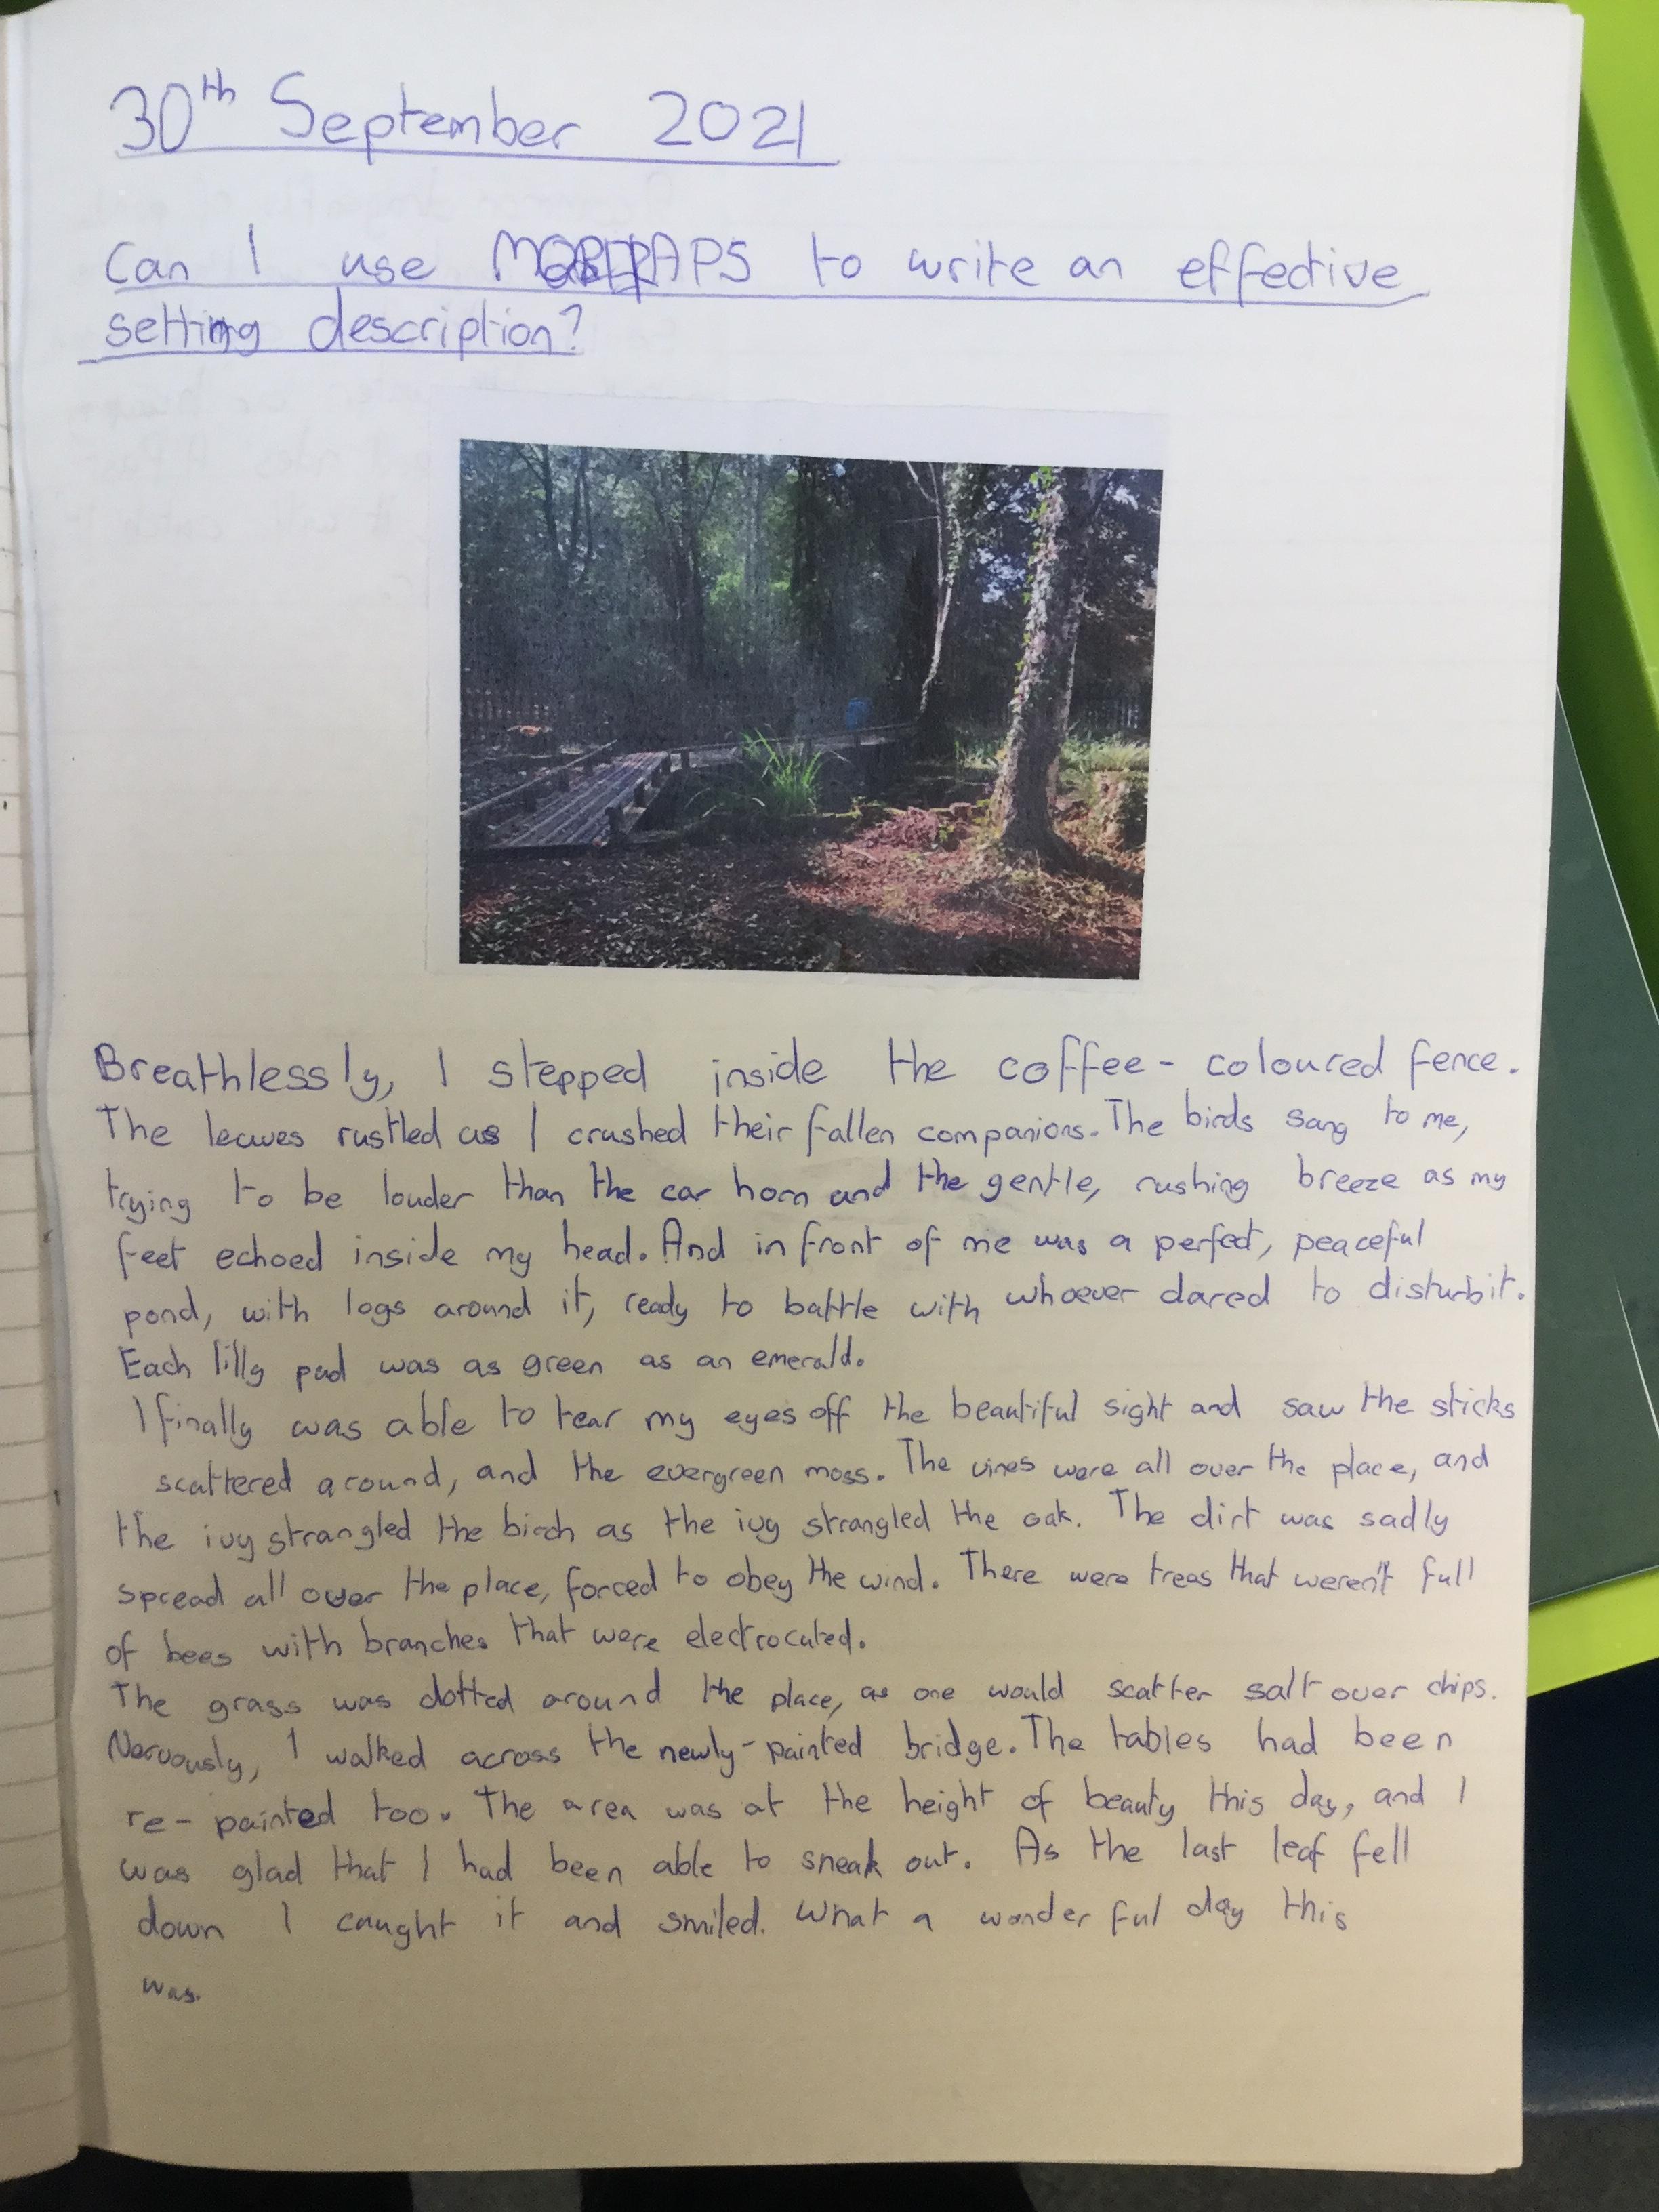 30th September 2021
Can I use APS to write an effective
setting description?
Breathlessly, I stepped inside the coffee-coloured fence.
The leaves rustled as I crushed their fallen companions. The birds sang to me,
trying to be louder than the car horn and the gentle, rushing breeze as my
feet echoed inside my head. And in front of me was a perfect, peaceful
pond, with logs around it, ready to battle with whoever dared to disturb it.
Each lilly pad was as green as an emerald.
I finally was able to tear my eyes off the beautiful sight and saw the sticks
scattered around, and the evergreen moss. The vines were all over the place, and
the ivy strangled the birch as the ivy strangled the oak. The dirt was sadly
spread all over the place, forced to obey the wind. There were trees that weren't full
of bees with branches that were electrocuted.
The grass was dotted around the place, as one would scatter salt over chips.
Nervously, I walked across the newly-painted bridge. The tables had been
re-painted too. The area was at the height of beauty this day, and I
was glad that I had been able to sneak out. As the last leaf fell
down I caught it and smiled. What a wonderful day this
was.